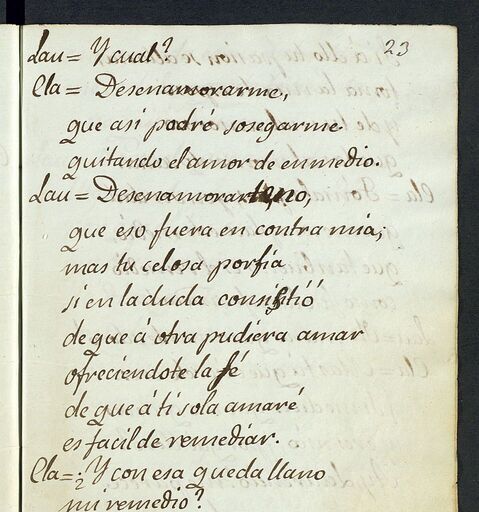 23
Lau= Y cual?
Cla= Desenamorarme,
que asi podré sosegarme
quitando el amor de enmedio.
Lau= Desenamorarte, no,
que eso fuera en contra mia;
mas tu celosa porfia
si en la duda consistió
de que á otra pudiera amar
ofreciendote la fé
de que á ti sola amaré
es facil de remediar.
Cla= ¿Y con esa queda llano
mi remedio?